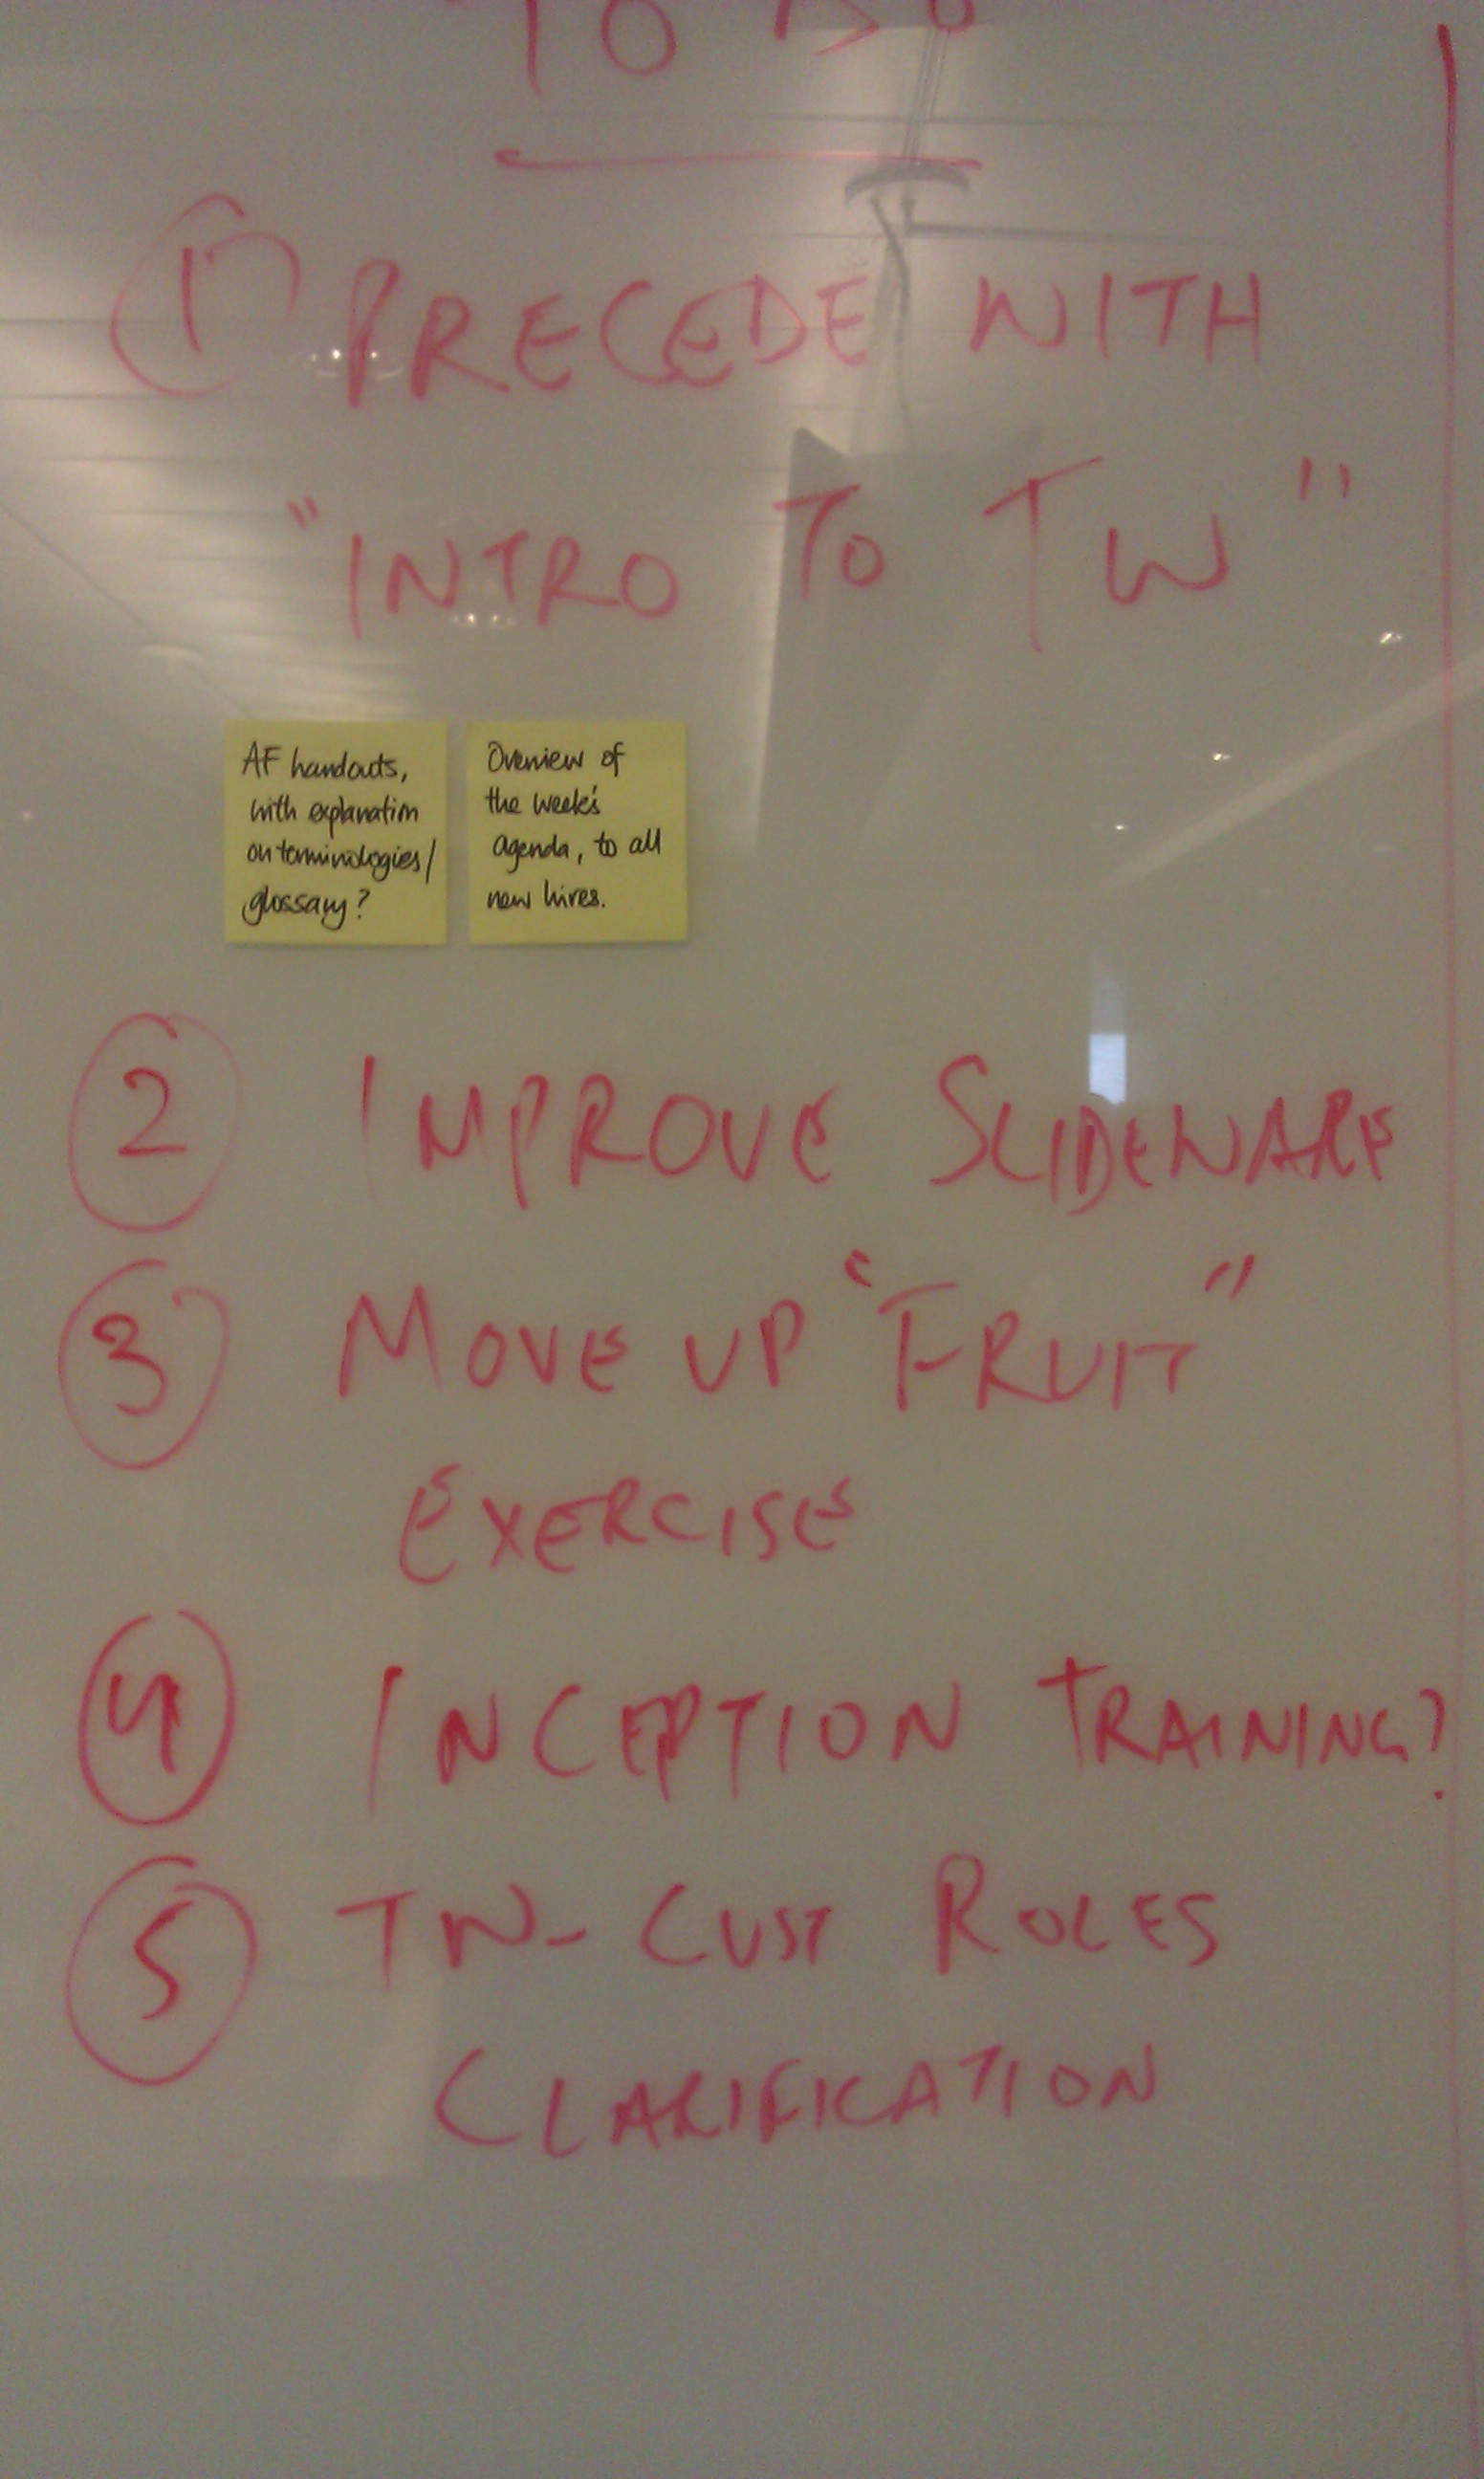 TO DO
1 PRECEDE WITH
"INTRO TO TW"
AF handouts,
with explanation
on terminologies/
glossary?
Overview of
the week's
agenda, to all
new hires.
2 IMPROVE SLIDEWARE
3 MOVE UP "FRUIT"
EXERCISE
4 INCEPTION TRAINING?
5 TW-CUST ROLES
CLARIFICATION